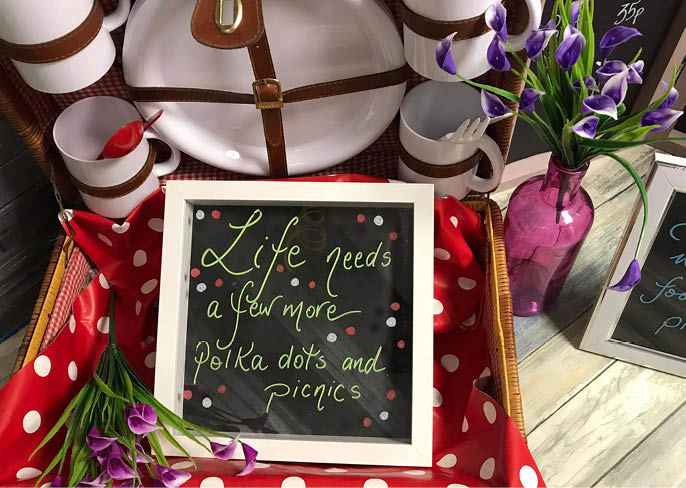 35p
Life needs
a few more
Polka dots and
picnics
foo
pi